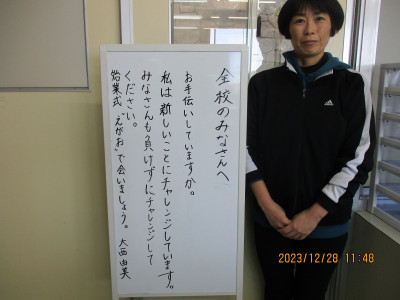 全校のみなさんへ
お手伝いしていますか。
私は新しいことにチャレンジしています。
みなさんも負けずにチャレンジして
ください。
始業式“えがお”で会いましょう。 大西由美
adidas
2023/12/28 11:48